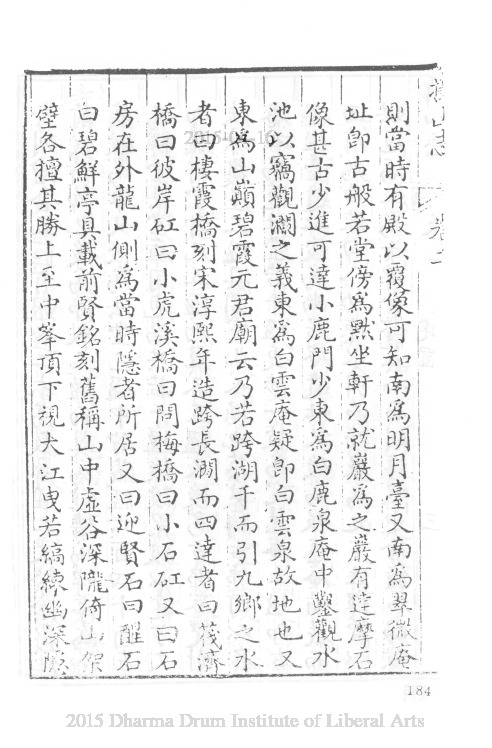 攝山志 卷二
則當時有殿以覆像可知南為明月臺又南為翠微庵
址卽古般若堂傍為黙坐軒乃就巖為之巖有達摩石
像甚古少進可達小鹿門少東為白鹿泉庵中鑿觀水
池以竊觀瀾之義東為白雲庵疑卽白雲泉故地也又
東為山巔碧霞元君廟云乃若跨湖千而引九鄉之水
者曰棲霞橋刻宋淳熙年造跨長澗而四達者曰筏濟
橋曰彼岸矼曰小虎溪橋曰問梅橋曰小石矼又曰石
房在外龍山側為當時隱者所居又曰迎賢石曰醒石
白碧鮮亭具載前賢銘刻舊稱山中虛谷深隴倚山架
壁各擅其勝上至中峯頂下視大江曳若縞練幽深
184
2015 Dharma Drum Institute of Liberal Arts